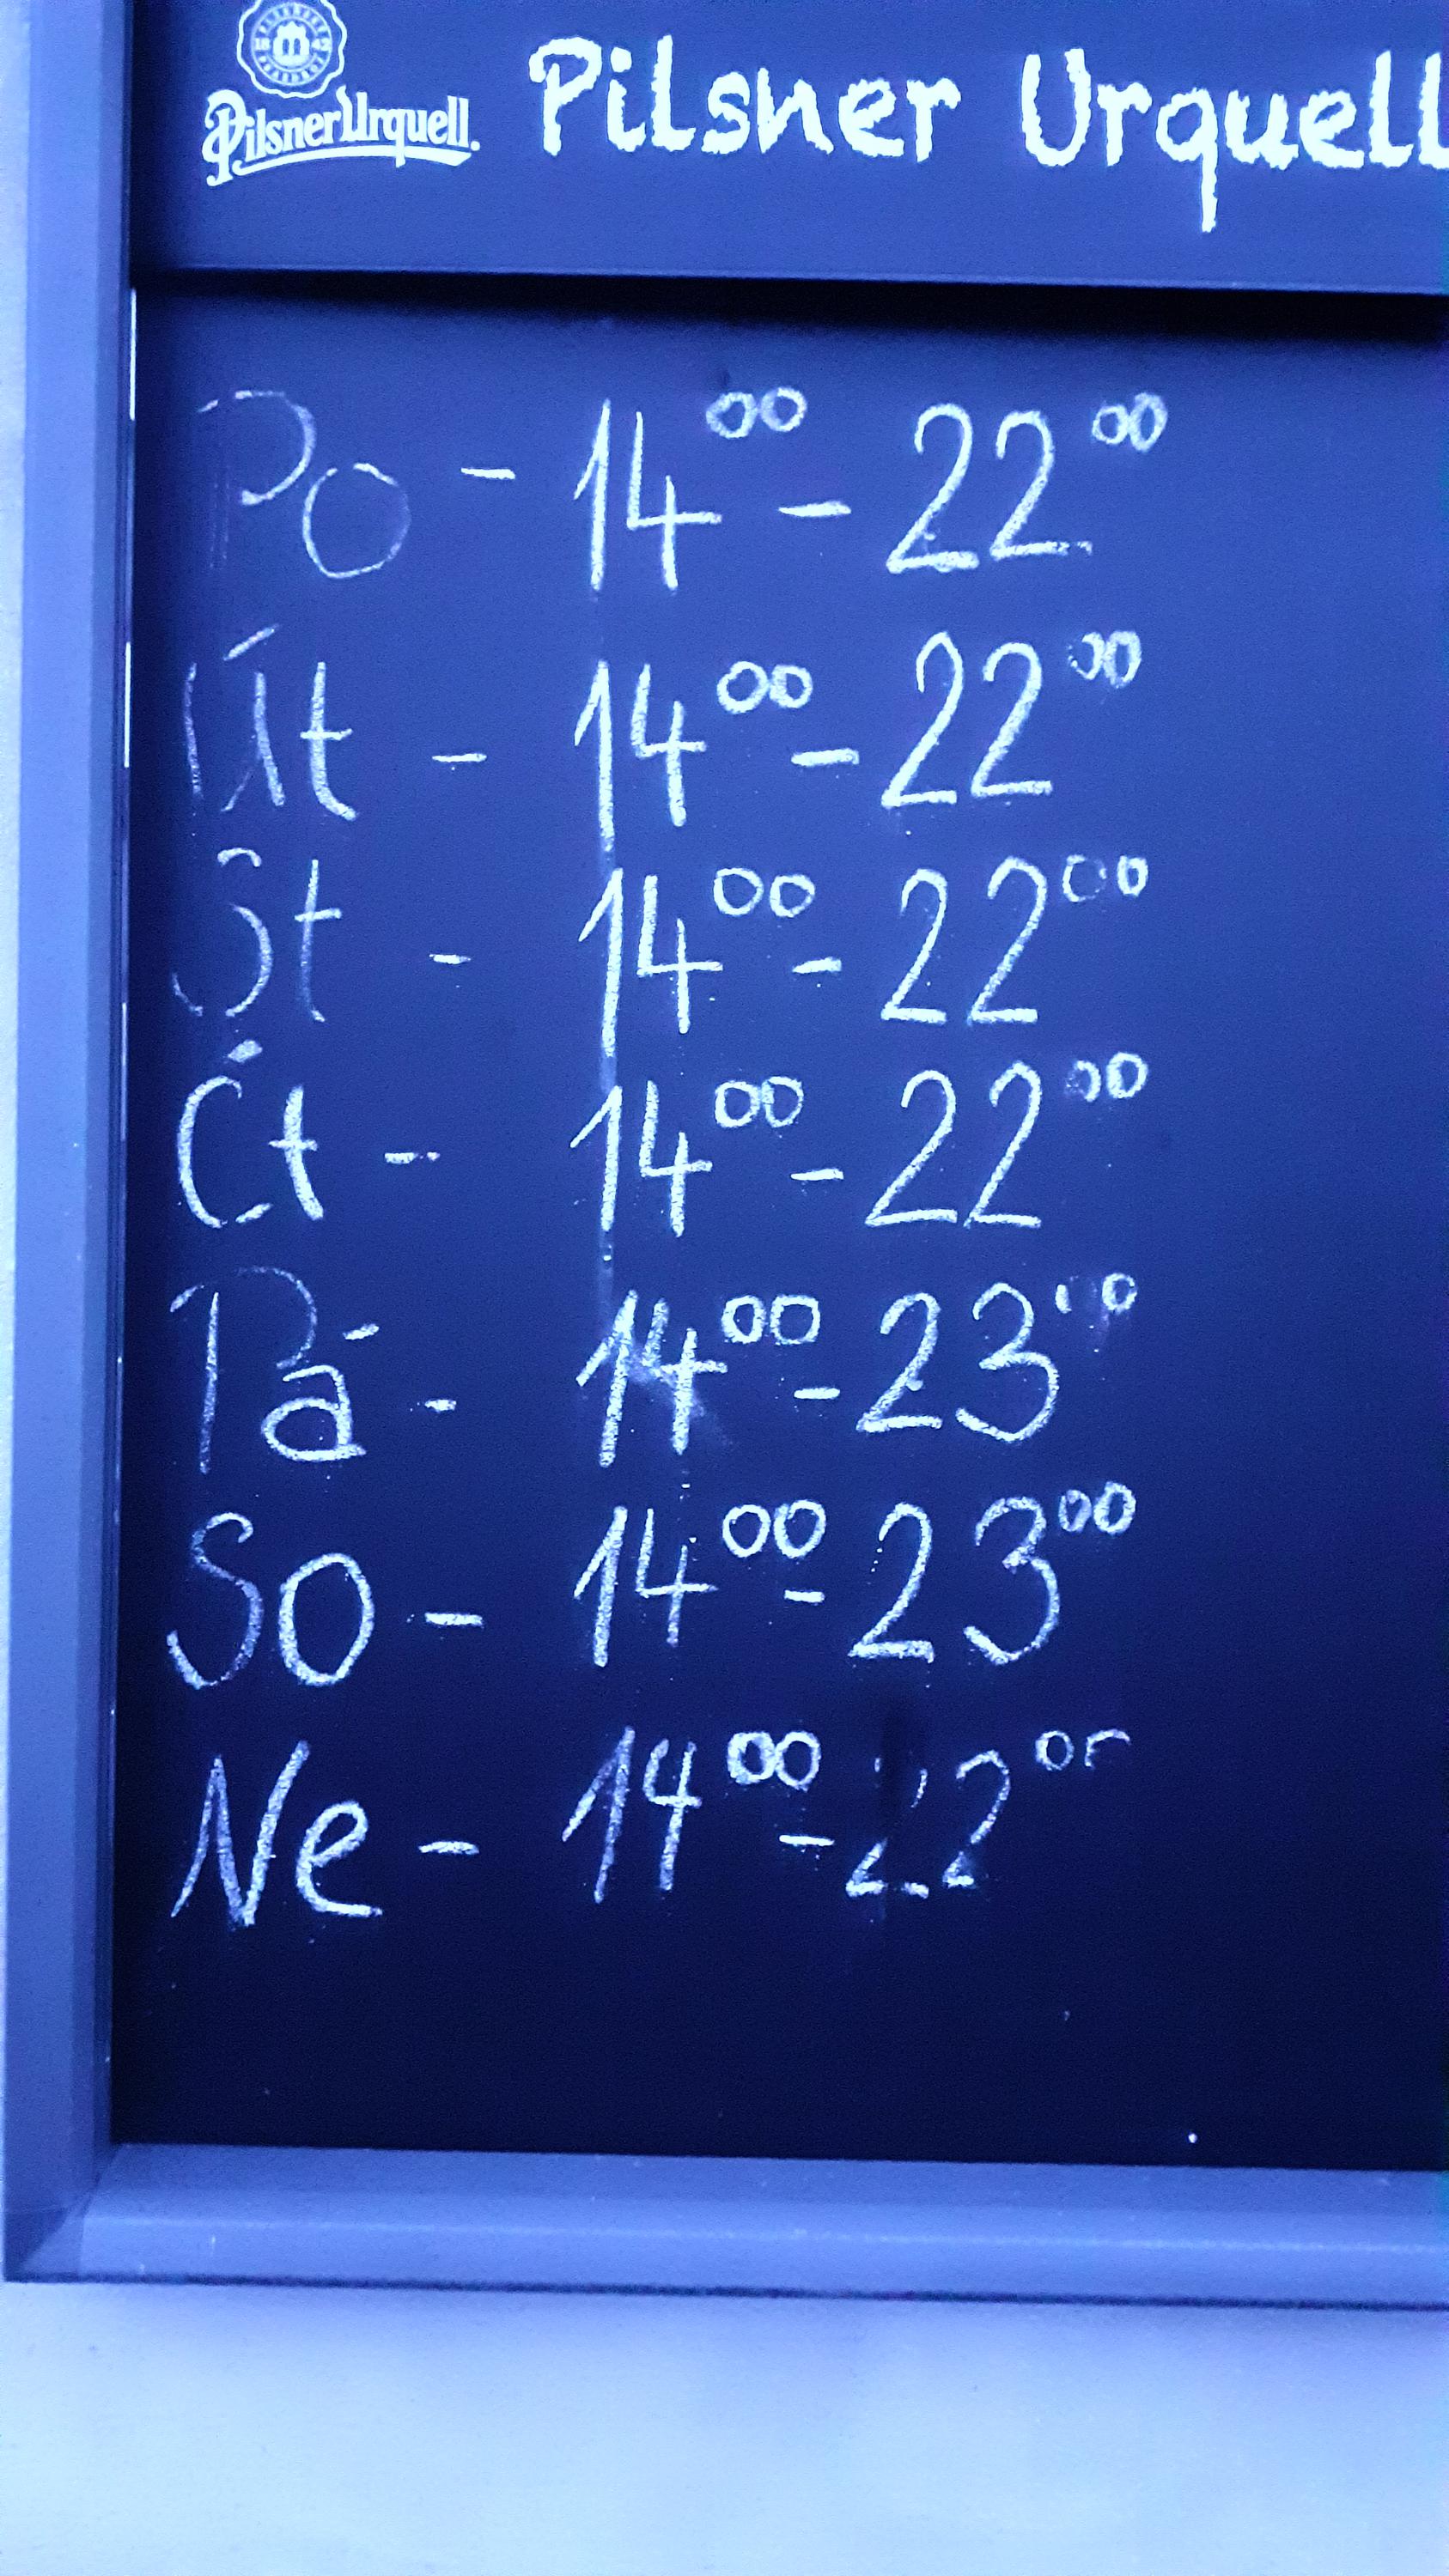 1842
Pilsner Urquell.
Pilsner Urquell
Po - 14⁰⁰ - 22⁰⁰
Út - 14⁰⁰ - 22⁰⁰
St - 14⁰⁰ - 22⁰⁰
Čt - 14⁰⁰ - 22⁰⁰
Pá - 14⁰⁰ - 23⁰⁰
So - 14⁰⁰ - 23⁰⁰
Ne - 14⁰⁰ - 22⁰⁰